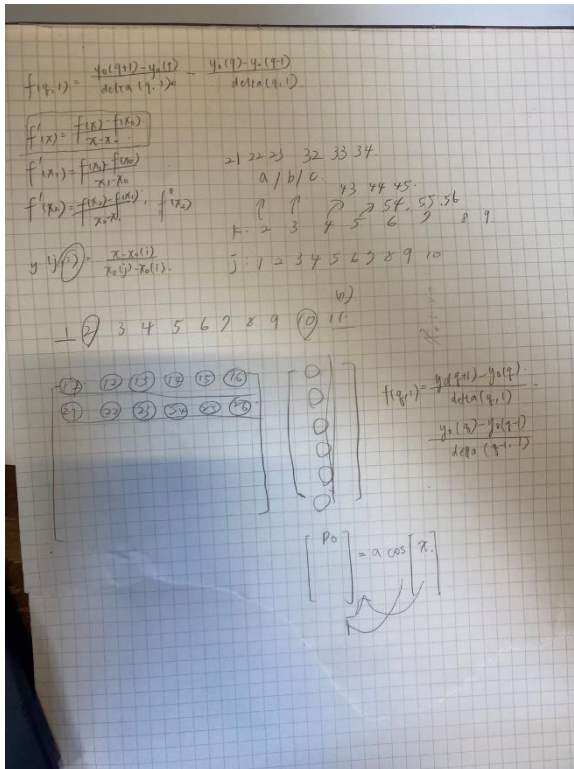 f(q,1) = y0(q+1)-y0(q) / delta(q,1) - y0(q)-y0(q-1) / delta(q,1).
f'(x) = f(x)-f(x0) / x-x0
f'(x1) = f(x1)-f(x0) / x1-x0
f'(x2) = f(x2)-f(x1) / , f''(x2)
21 22 23 32 33 34.
a / b / c.
43 44 45.
54. 55. 56
k: 2 3 4 5 6 7 8 9
y (j,i) = x-x0(i) / x0(j)-x0(i).
j: 1 2 3 4 5 6 7 8 9 10
1 2 3 4 5 6 7 8 9 10 11.
12 13 14 15 16
21 22 23 24 25 26
f(q,1) = y0(q+1)-y0(q) / delta(q,1) -
y0(q)-y0(q-1) / delta(q-1,1)
[ P0 ] = a cos [ x. ]